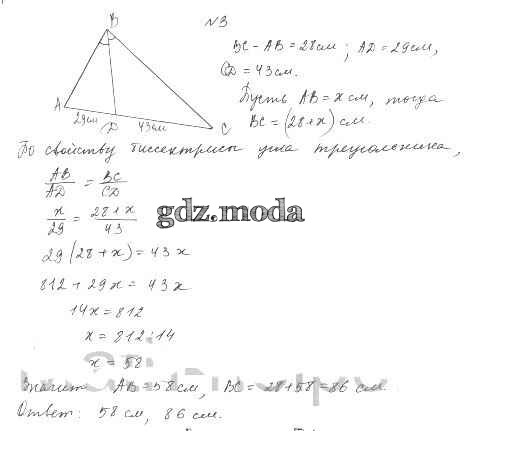 N3
B
BC - AB = 28 см ; AD = 29 см,
CD = 43 см.
Пусть AB = x см, тогда
BC = (28+x) см.
A
29см
D
43см
C
По свойству биссектрисы угла треугольника,
AB/AD = BC/CD
x/29 = 28+x/43
gdz.moda
29(28+x) = 43x
812 + 29x = 43x
14x = 812
x = 812:14
x = 58
Значит AB = 58 см, BC = 28+58 = 86 см.
Ответ: 58 см, 86 см.